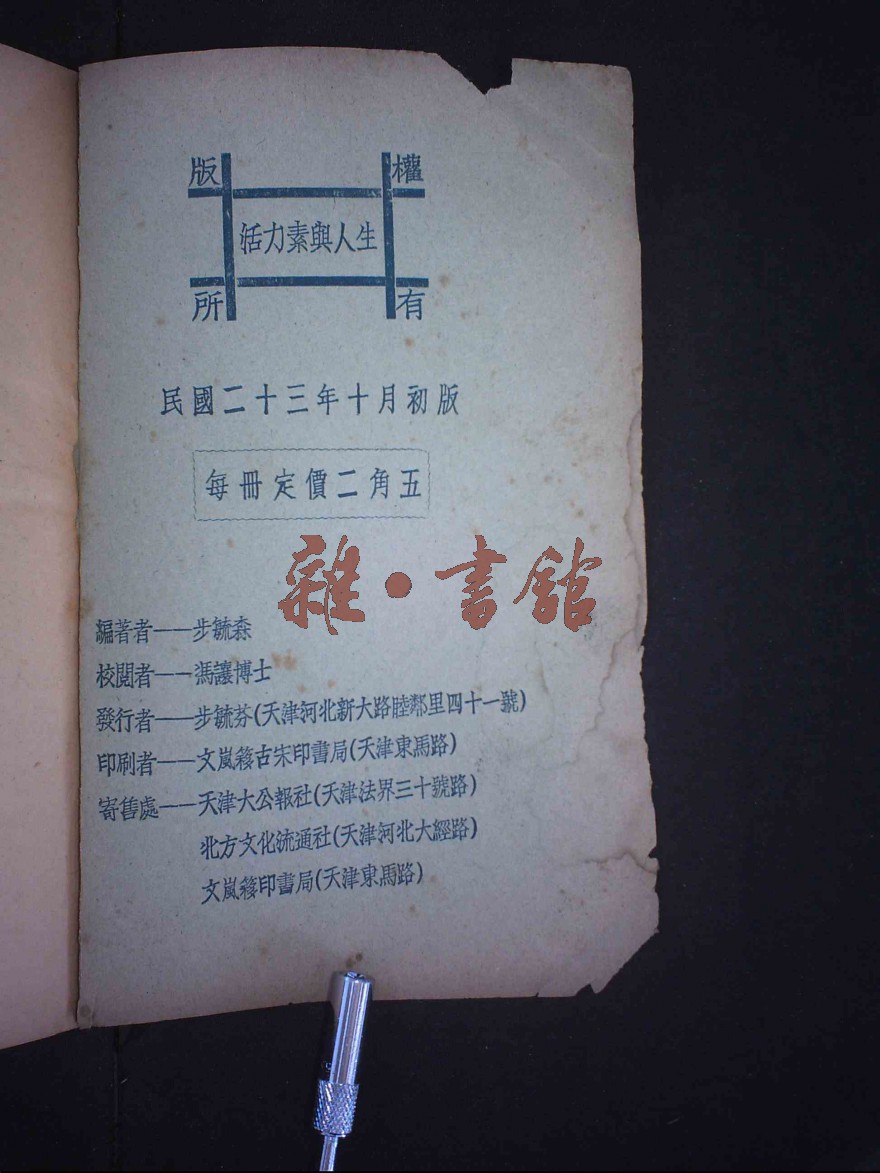 版權
活力素與人生
所有
民國二十三年十月初版
每冊定價二角五
雜·書館
編著者——步毓森
校閱者——馮讓博士
發行者——步毓芬(天津河北新大路睦鄰里四十一號)
印刷者——文嵐簃古宋印書局(天津東馬路)
寄售處——天津大公報社(天津法界三十號路)
北方文化流通社(天津河北大經路)
文嵐簃印書局(天津東馬路)